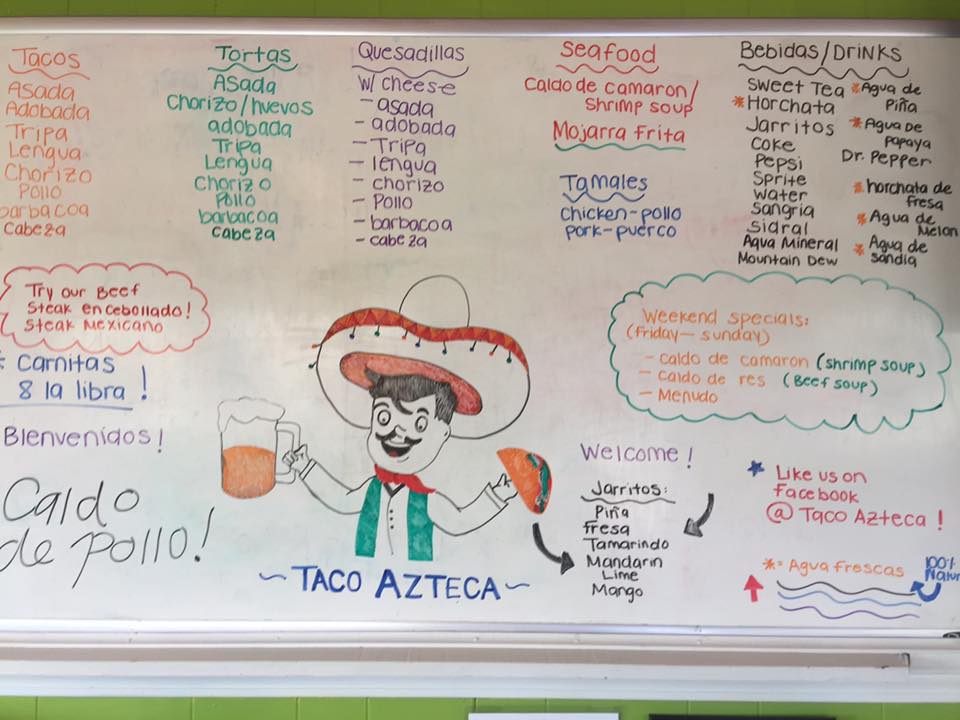 Tacos
Asada
Adobada
Tripa
Lengua
Chorizo
Pollo
barbacoa
cabeza
Tortas
Asada
Chorizo/huevos
adobada
Tripa
Lengua
Chorizo
Pollo
barbacoa
cabeza
Quesadillas
w/ cheese
- asada
- adobada
- Tripa
- lengua
- chorizo
- Pollo
- barbacoa
- cabeza
Seafood
Caldo de camaron/
Shrimp soup
Mojarra Frita
Tamales
chicken-pollo
pork-puerco
Bebidas/Drinks
Sweet Tea
* Horchata
Jarritos
Coke
Pepsi
Sprite
Water
Sangria
Sidral
Agua Mineral
Mountain Dew
* Agua de
Piña
* Agua De
papaya
Dr. Pepper
* horchata de
fresa
* Agua de
Melon
* Agua de
sandia
Try our Beef
Steak encebollado!
Steak Mexicano
* Carnitas
8 la libra!
Bienvenidos!
Caldo
de pollo!
~ TACO AZTECA ~
Weekend specials:
(Friday — Sunday)
- caldo de camaron (shrimp soup)
- caldo de res (Beef soup)
- Menudo
Welcome!
Jarritos:
Piña
fresa
Tamarindo
Mandarin
Lime
Mango
* Like us on
Facebook
@ Taco Azteca!
*= Agua frescas
100%